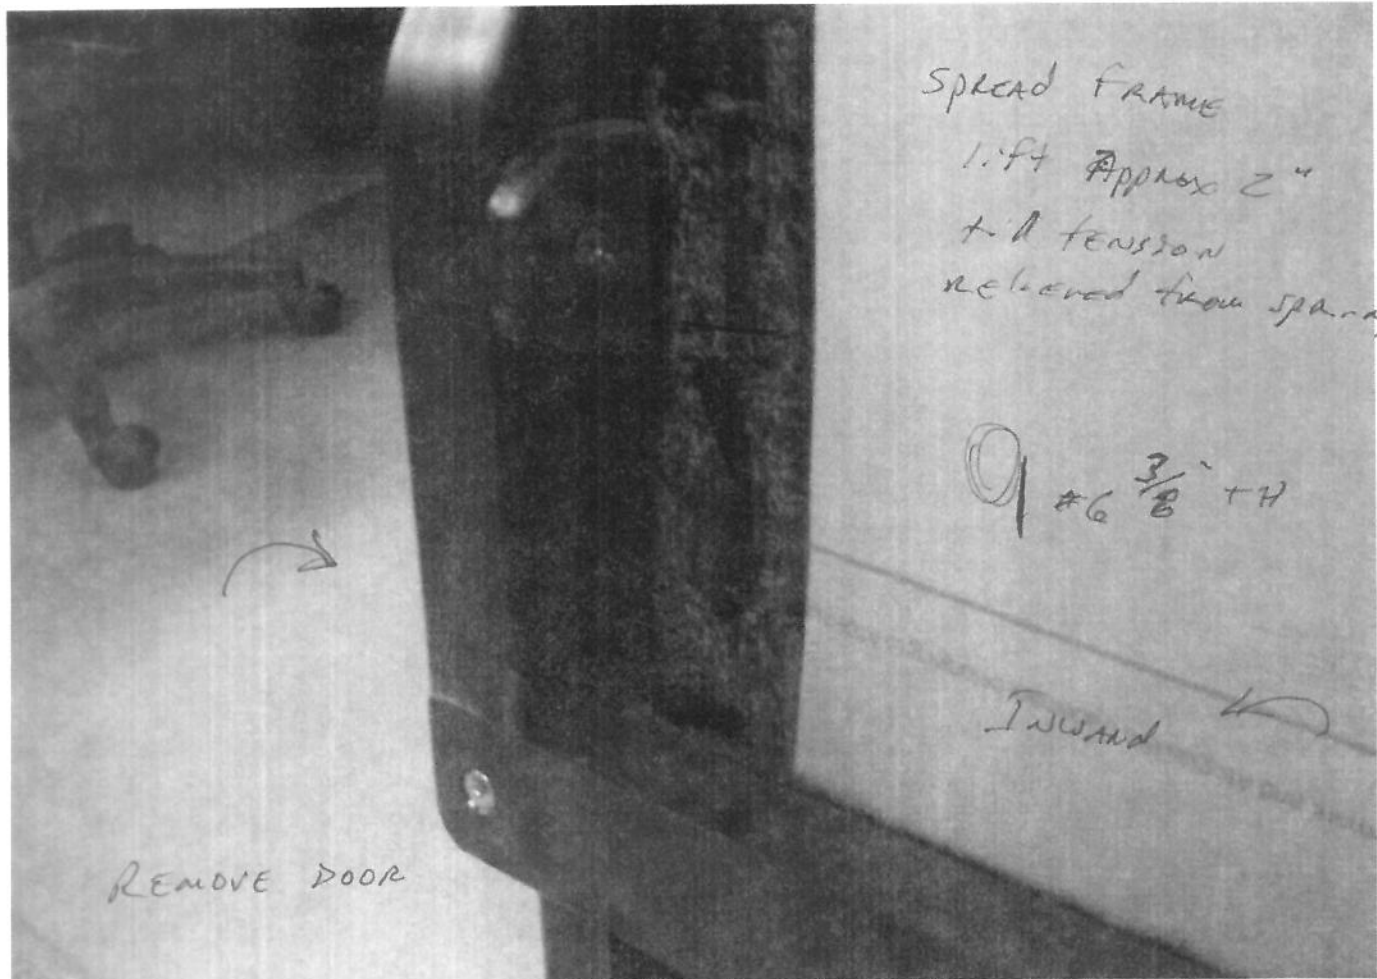 SPREAD FRAME
lift Approx 2"
till tension
relieved from spring
#6 3/8" + H
INWARD
REMOVE DOOR